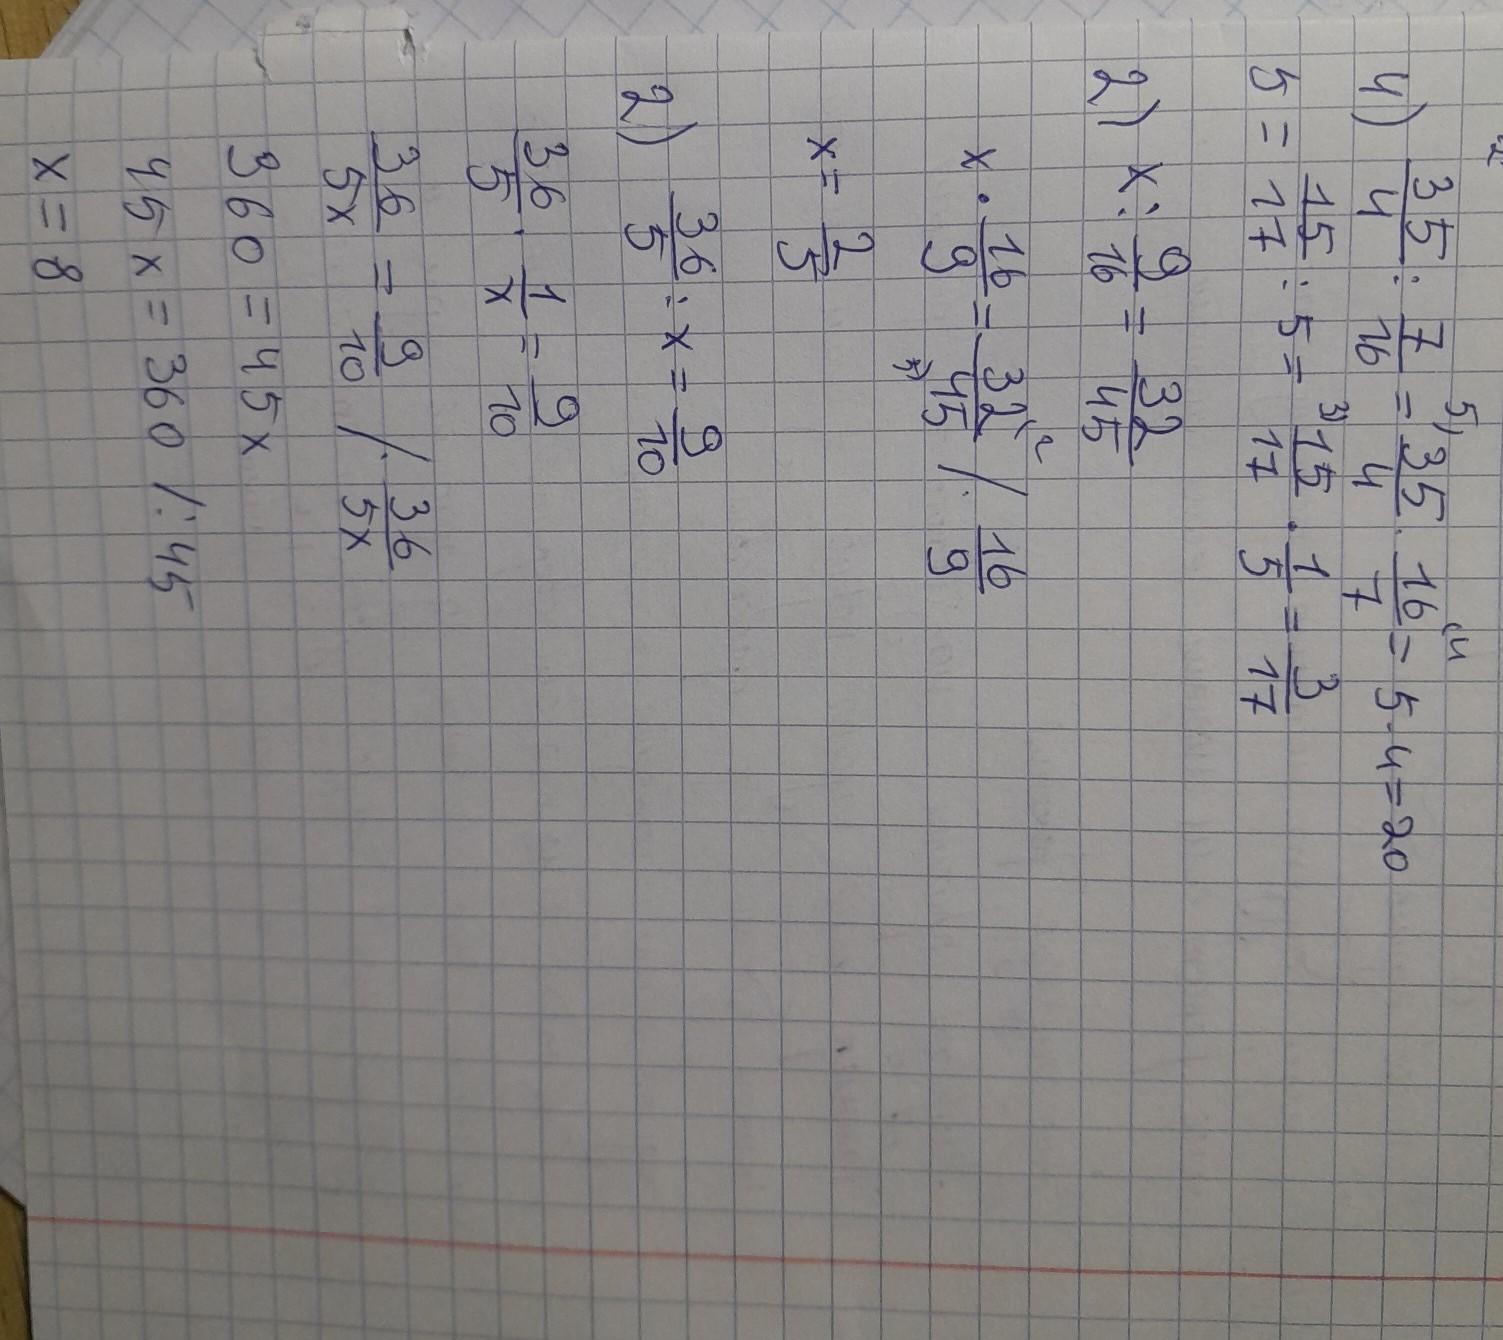 4) 35/4 : 7/16 = 5) 35/4 · 16/7 (4 = 5·4=20
5 = 15/17 : 5 = 3) 15/17 · 1/5 = 3/17
2) x : 9/16 = 32/45
x · 16/9 = 32/45 (2 /: 16/9
x = 2/5
2) 36/5 : x = 9/10
36/5 · 1/x = 9/10
36/5x = 9/10 /: 36/5x
360 = 45x
45x = 360 /:45
x = 8